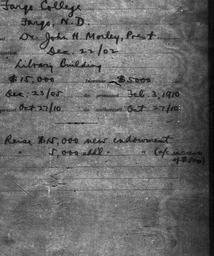 Fargo College
Fargo, N.D.
Dr. John H. Morley, Prest.
Dec. 22/02
Library Building
$15,000 $5000
Dec. 23/05 Feb. 3, 1910
Oct 27/10 Oct. 27/10
Raise $15,000 new endowment
" 5,000 addl. " (a/c increase
of $5000)